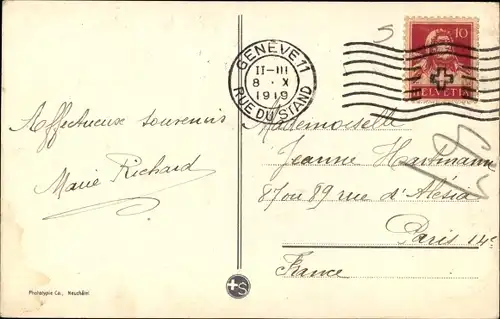 GENÈVE 11
II-III
8 X
1919
RUE DU STAND
10
HELVETIA
Affectueux souvenirs
Marie Richard
Mademoiselle
Jeanne Hartmann
87 ou 89 rue d'Alésia
Paris 14e
France
Phototypie Co., Neuchâtel
S